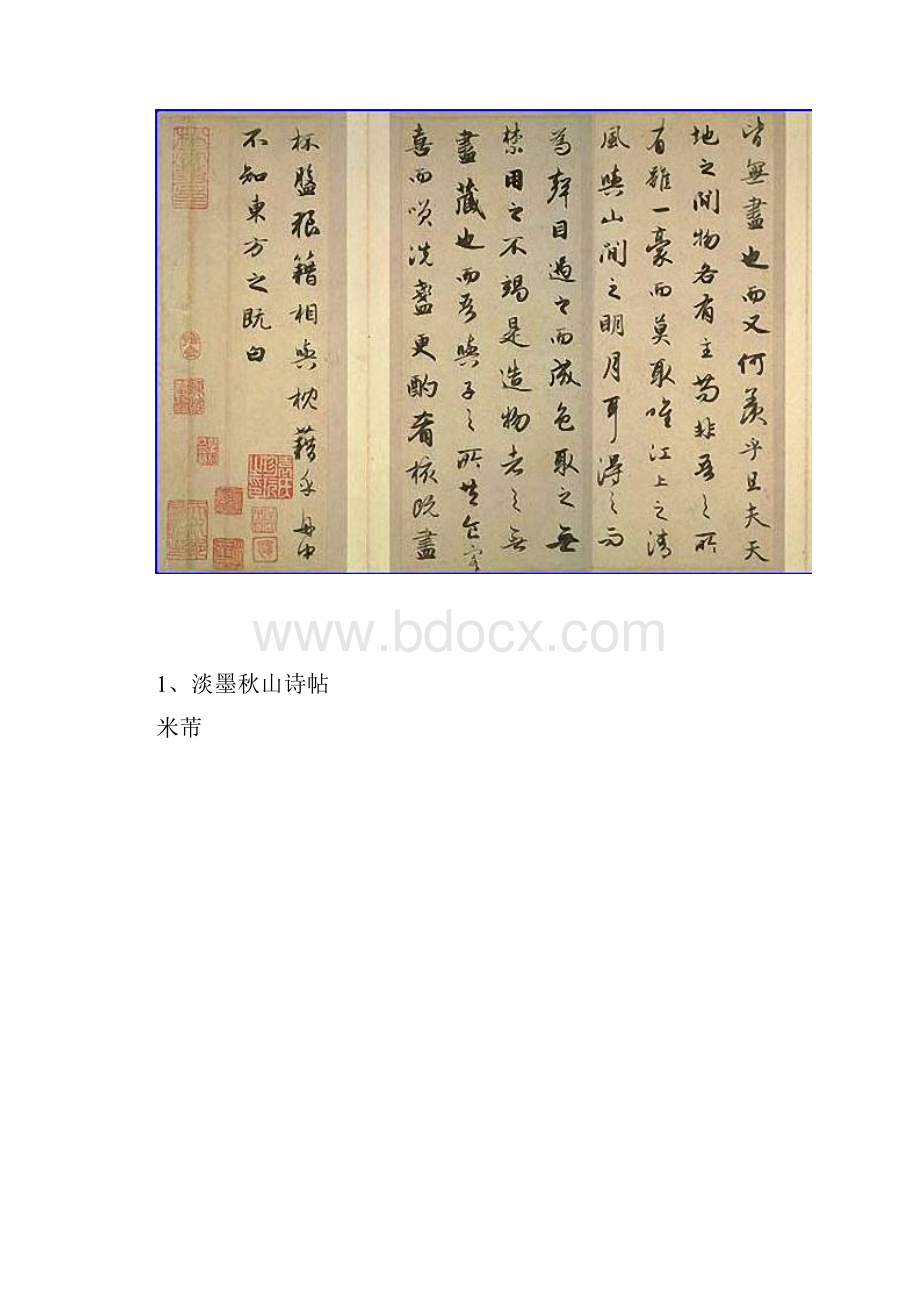 皆無盡也而又何羨乎且夫天
地之間物各有主苟非吾之所
有雖一豪而莫取唯江上之清
風與山間之明月耳得之而
為聲目遇之而成色取之無
禁用之不竭是造物者之無
盡藏也而吾與子之所共食客
喜而笑洗盞更酌肴核既盡
杯盤狼籍相與枕藉乎舟中
不知東方之既白
www.bdocx.com
1、淡墨秋山诗帖
米芾